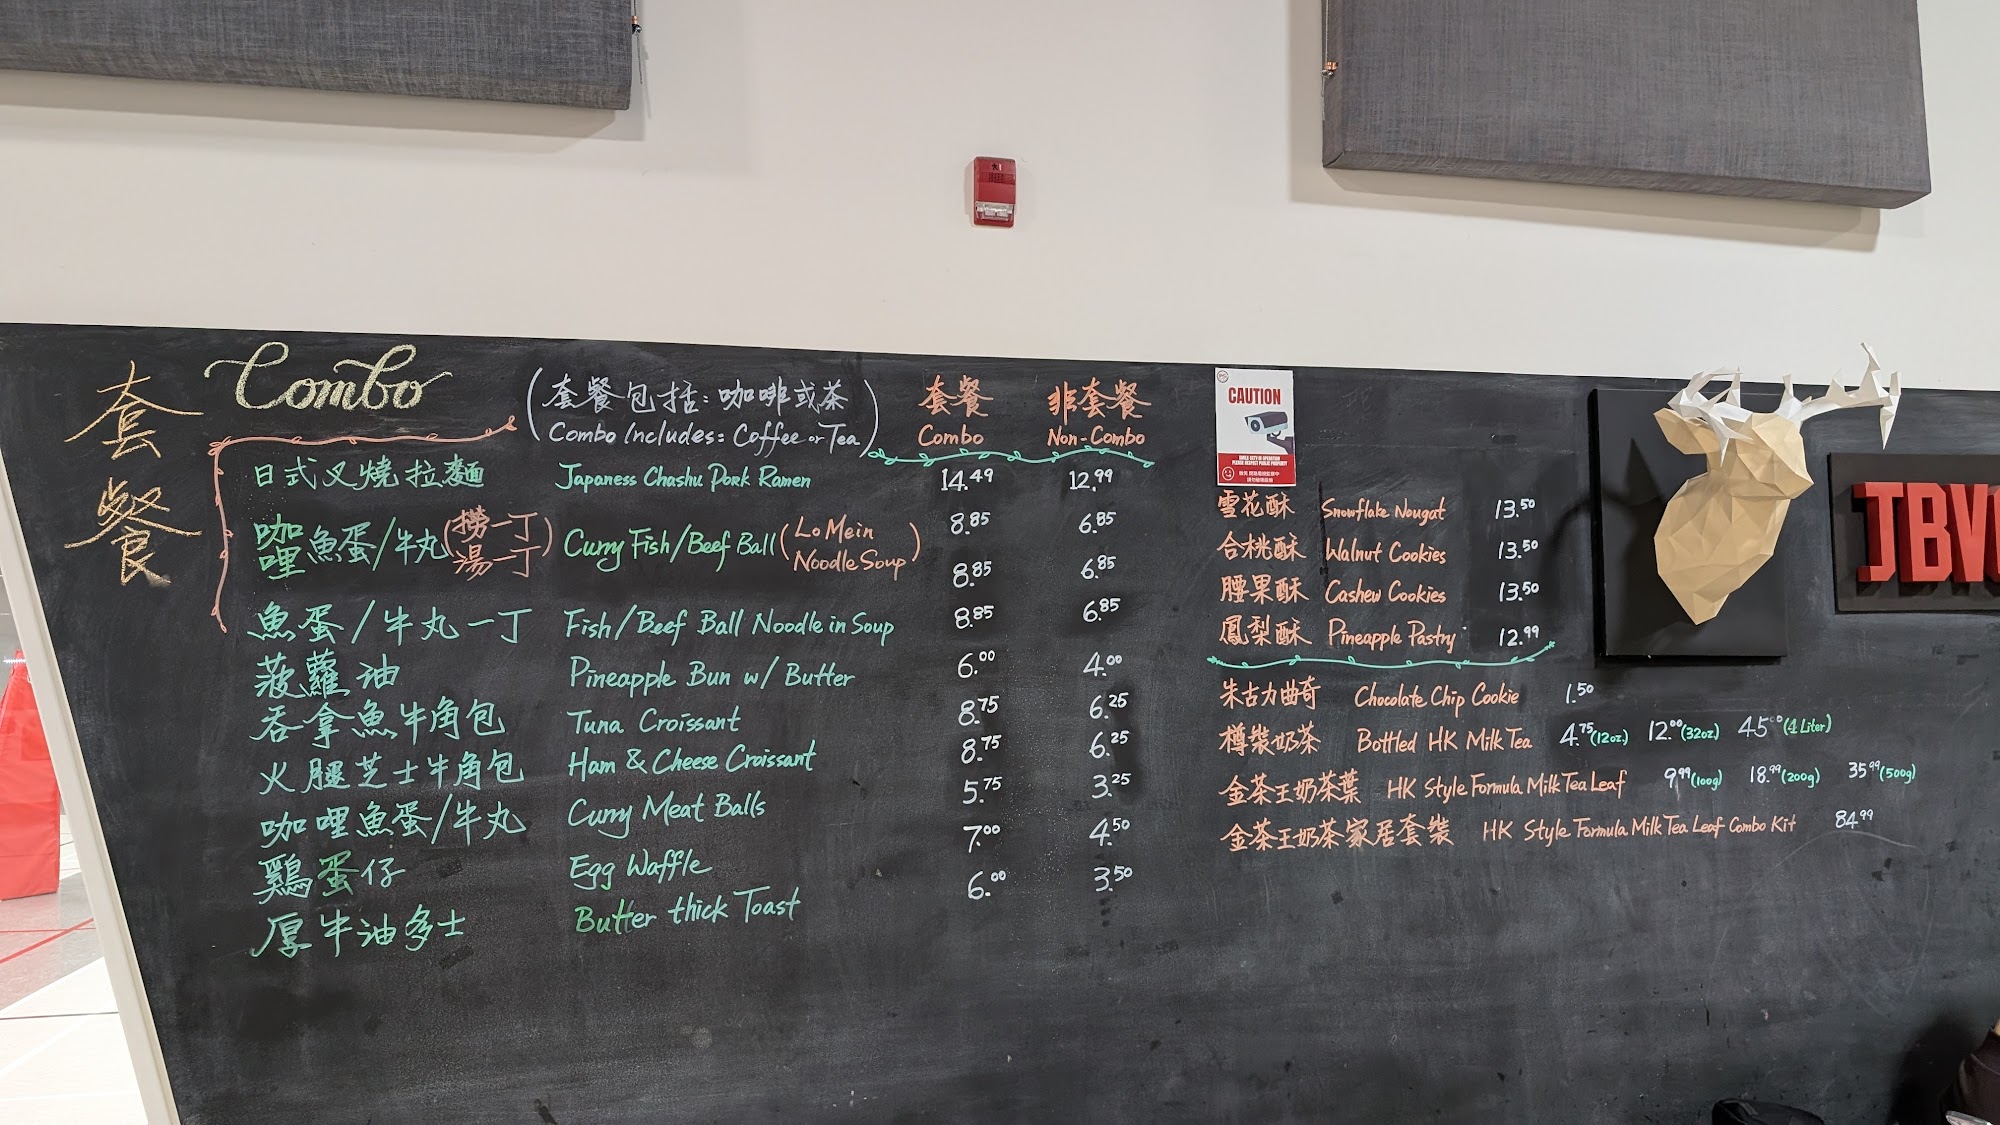 套餐 Combo
(套餐包括：咖啡或茶
Combo Includes: Coffee or Tea)
套餐 非套餐
Combo Non-Combo
日式叉燒拉麵 Japaness Chashu Pork Ramen 14.49 12.99
咖哩魚蛋/牛丸(撈一丁 湯一丁) Curry Fish/Beef Ball (Lo Mein Noodle Soup) 8.85 6.85
8.85 6.85
魚蛋/牛丸一丁 Fish/Beef Ball Noodle in Soup 8.85 6.85
菠蘿油 Pineapple Bun w/ Butter 6.00 4.00
吞拿魚牛角包 Tuna Croissant 8.75 6.25
火腿芝士牛角包 Ham & Cheese Croissant 8.75 6.25
咖哩魚蛋/牛丸 Curry Meat Balls 5.75 3.25
鷄蛋仔 Egg Waffle 7.00 4.50
厚牛油多士 Butter thick Toast 6.00 3.50
CAUTION
雪花酥 Snowflake Nougat 13.50
合桃酥 Walnut Cookies 13.50
腰果酥 Cashew Cookies 13.50
鳳梨酥 Pineapple Pastry 12.99
朱古力曲奇 Chocolate Chip Cookie 1.50
樽裝奶茶 Bottled HK Milk Tea 4.75(12oz.) 12.00(32oz.) 45.00(4 Liter)
金茶王奶茶葉 HK Style Formula Milk Tea Leaf 9.99(100g) 18.99(200g) 35.99(500g)
金茶王奶茶家居套裝 HK Style Formula Milk Tea Leaf Combo Kit 84.99
JBV